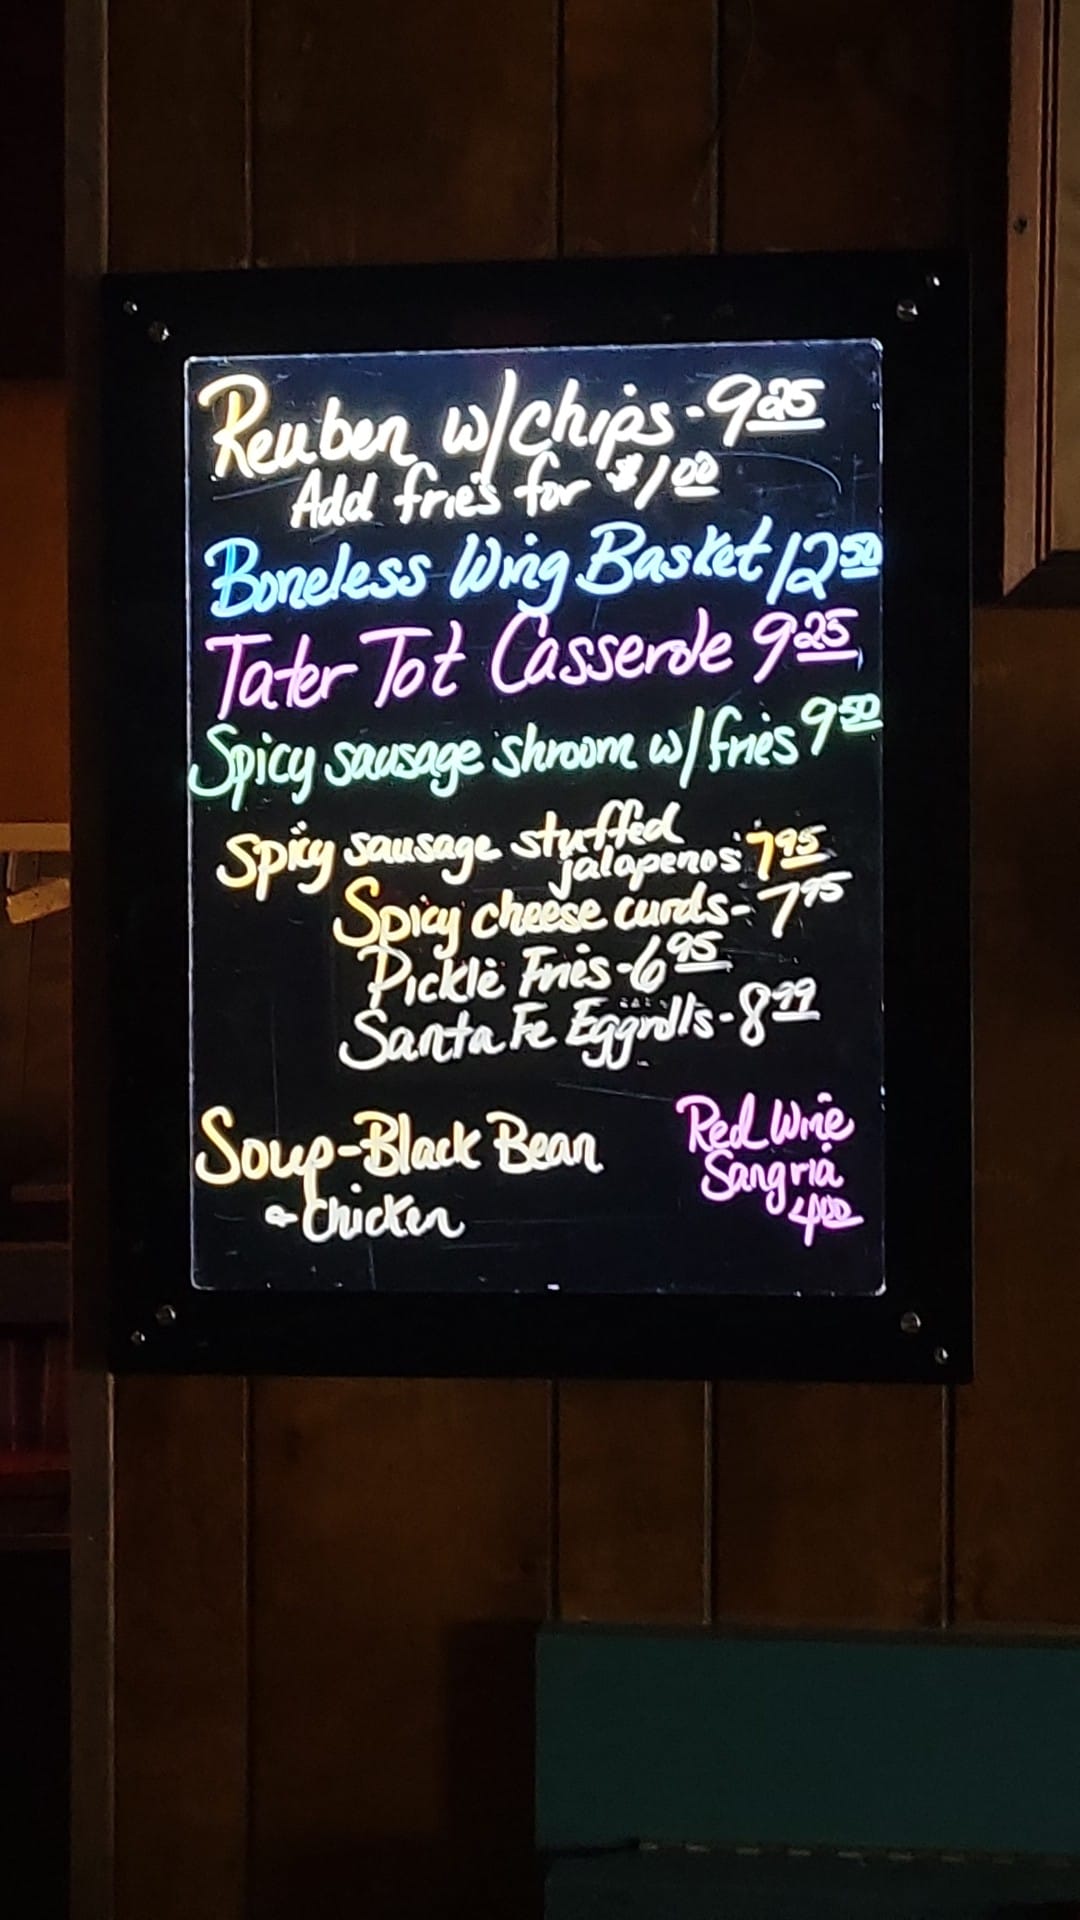 Reuben w/chips - 9.25
Add fries for $1.00
Boneless Wing Basket 12.50
Tater Tot Casserole 9.25
Spicy sausage shroom w/fries 9.50
Spicy sausage stuffed
jalapenos 7.95
Spicy cheese curds - 7.95
Pickle Fries - 6.95
Santa Fe Eggrolls - 8.99
Soup - Black Bean
& Chicken
Red Wine
Sangria
4.00